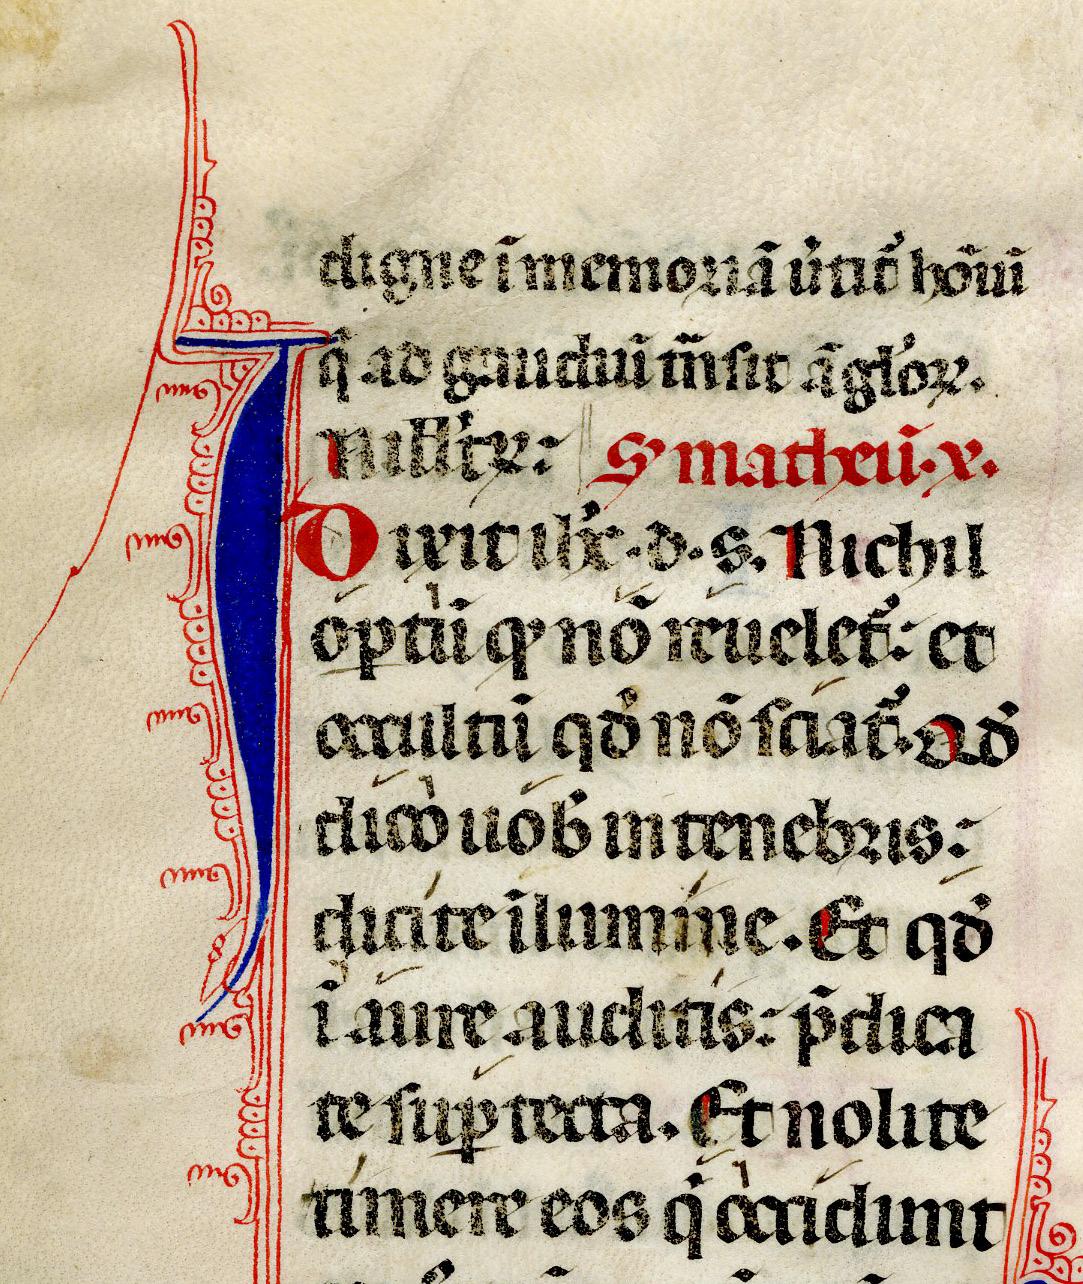 digne ī memoriā ūtit̄ hoīuī
q̄ ad gaudiuȝ trāsit āglōꝝ.
Sm̄ matheū. x.
Dixit ih̄c. d. s. Nichil
optū qȝ nō reuelet᷑: et
occultū qd̄ nō sciat᷑. Qd̄
dico uob̄ in tenebris:
dicite ī lumine. Et qd̄
ī aure auditis: p̄dica
te sup̱ tecta. Et nolite
timere eos qͥ occidunt